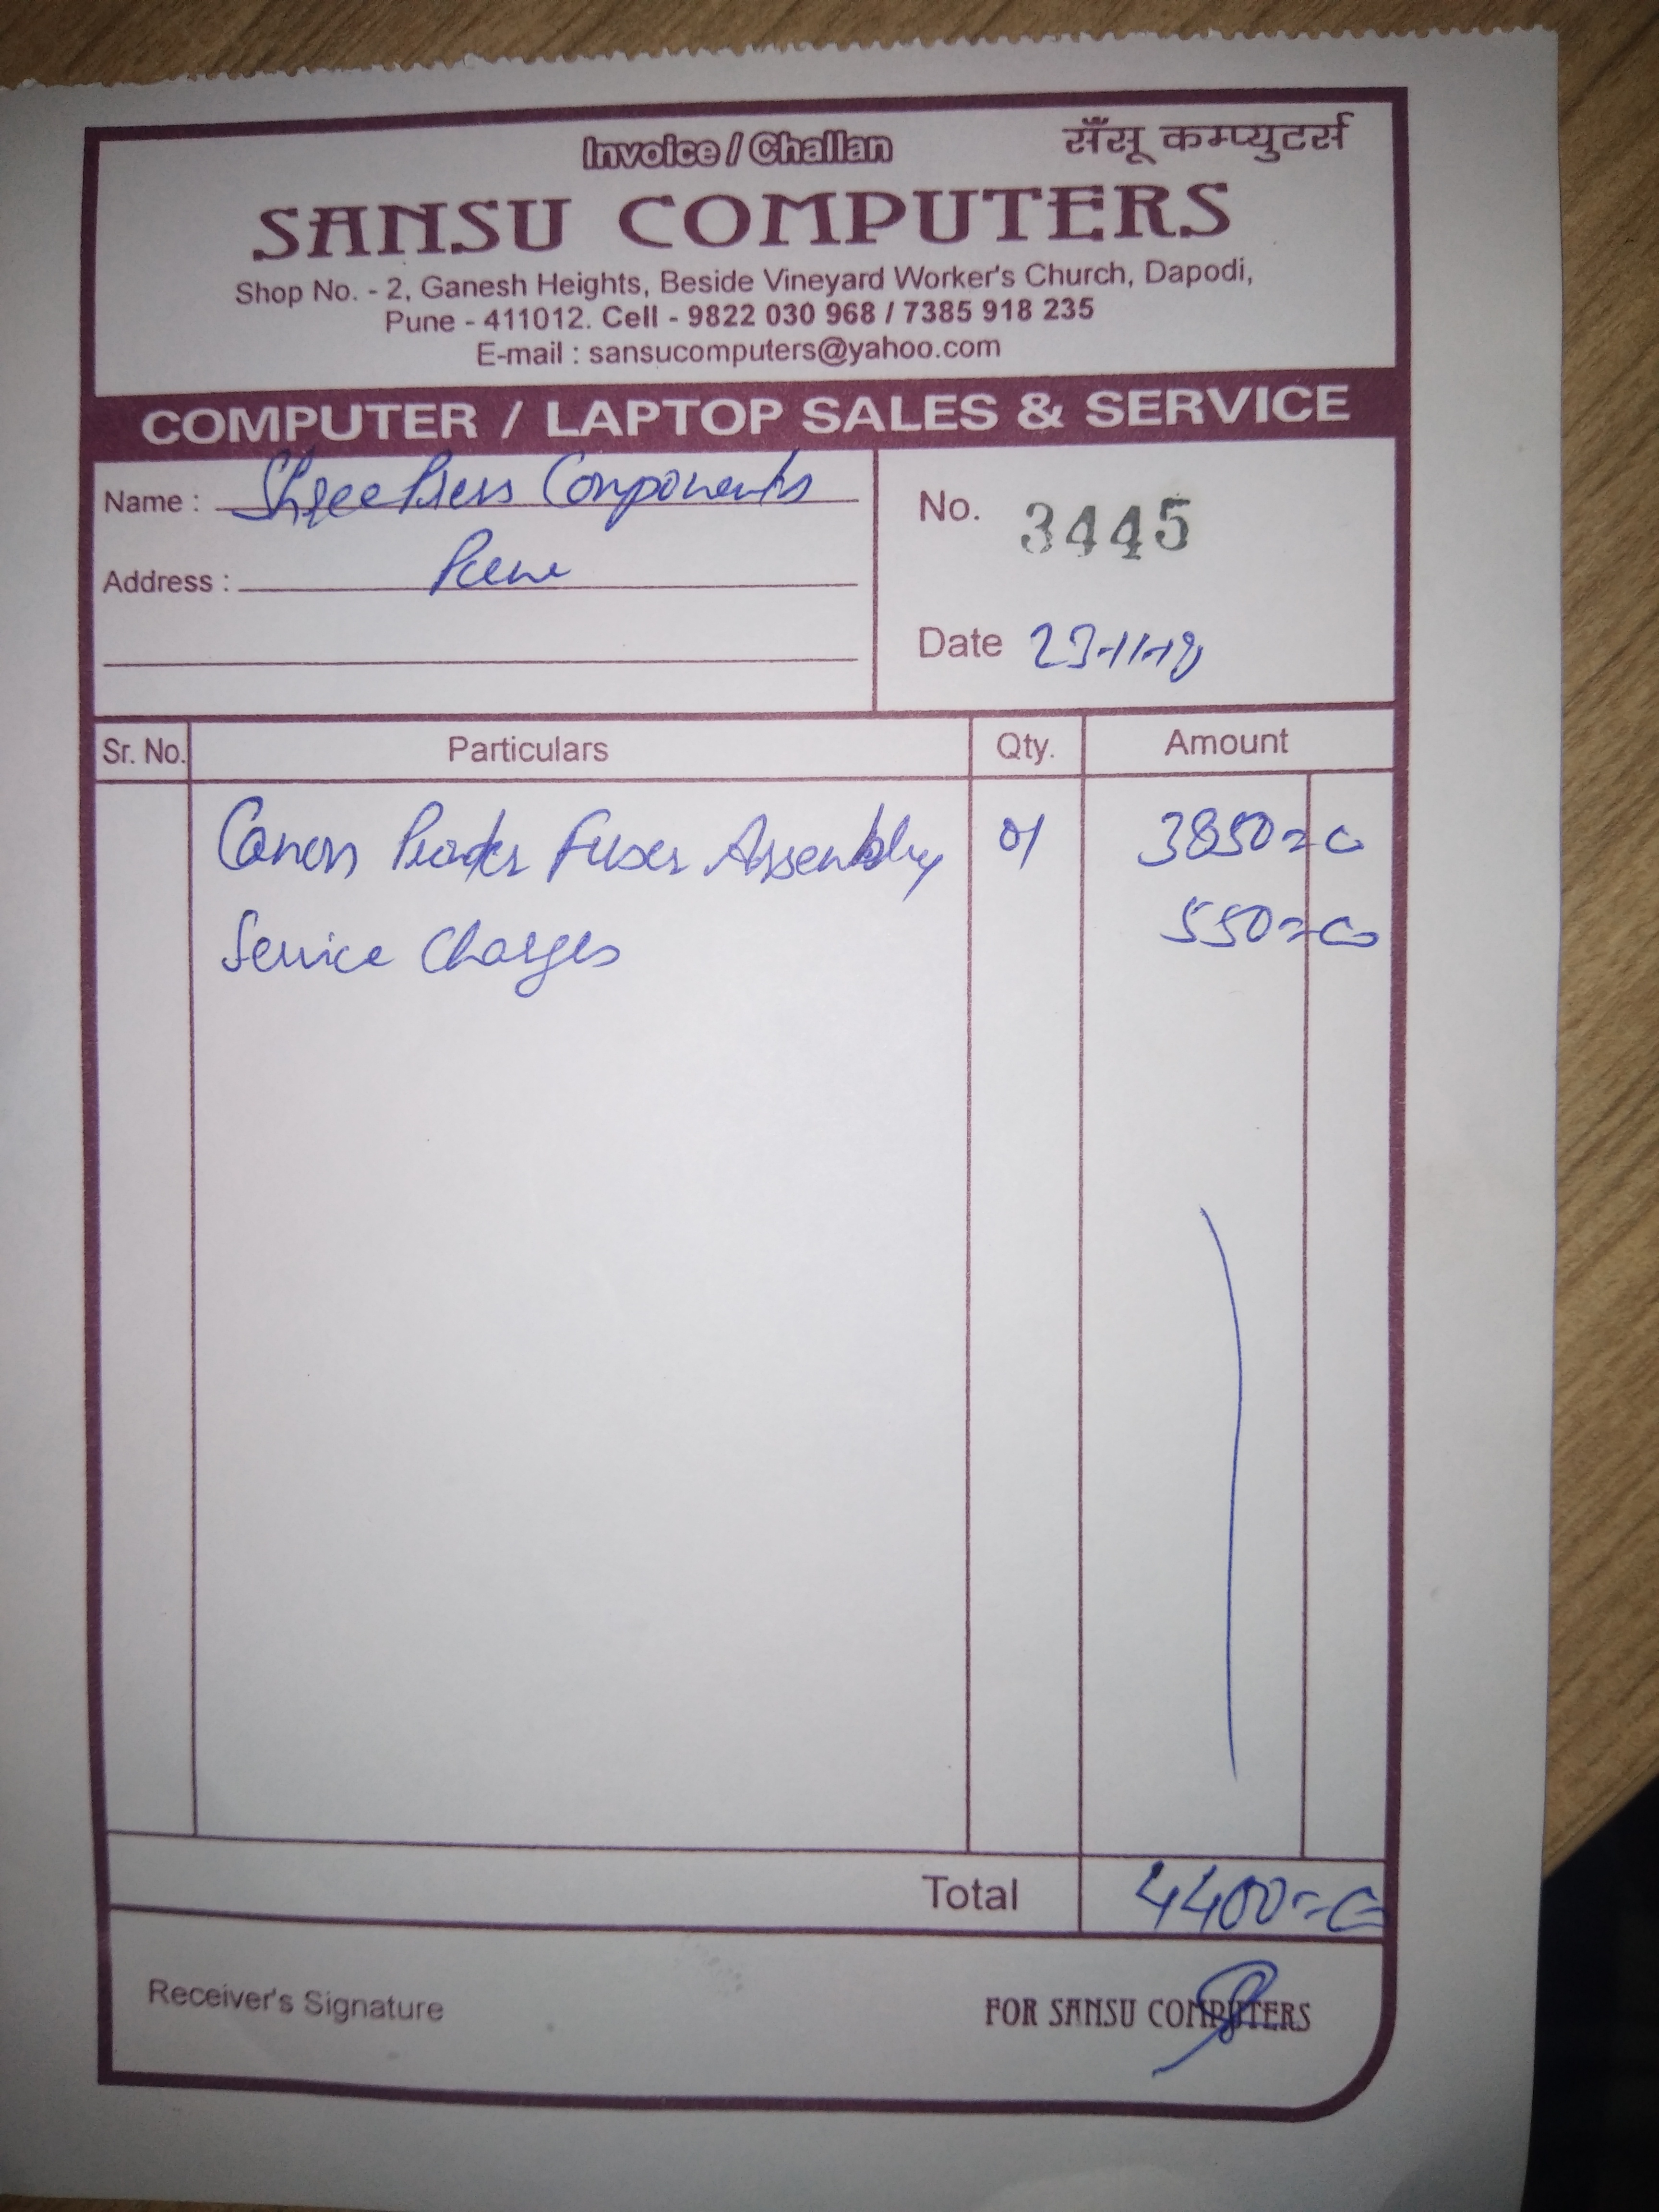 Invoice / Challan
सँसू कम्प्युटर्स
SANSU COMPUTERS
Shop No. - 2, Ganesh Heights, Beside Vineyard Worker's Church, Dapodi,
Pune - 411012. Cell - 9822 030 968 / 7385 918 235
E-mail : sansucomputers@yahoo.com
COMPUTER / LAPTOP SALES & SERVICE
Name : Shree Press Components
No. 3445
Address : Pune
Date 23-11-18
Sr. No. Particulars Qty. Amount
Canon Printer Fuser Assembly 01 3850=00
Service Charges 550=00
Total 4400=00
Receiver's Signature
FOR SANSU COMPUTERS